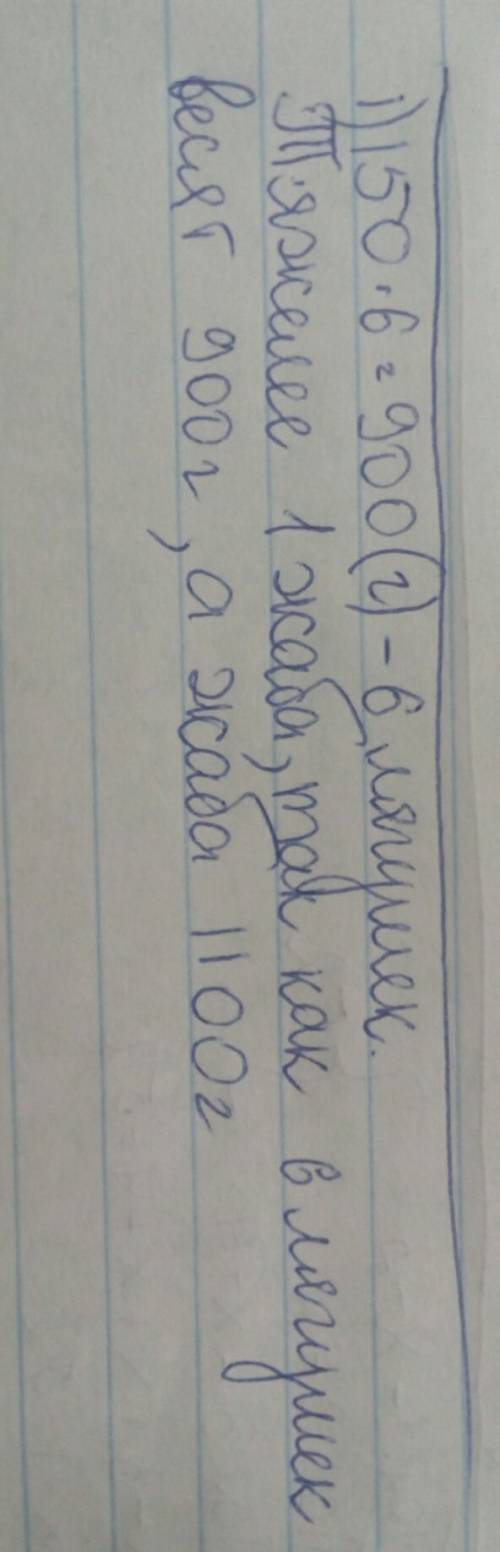 1) 150·6=900(г)-6 лягушек.
Тяжелее 1 жаба, так как 6 лягушек
весят 900г, а жаба 1100г